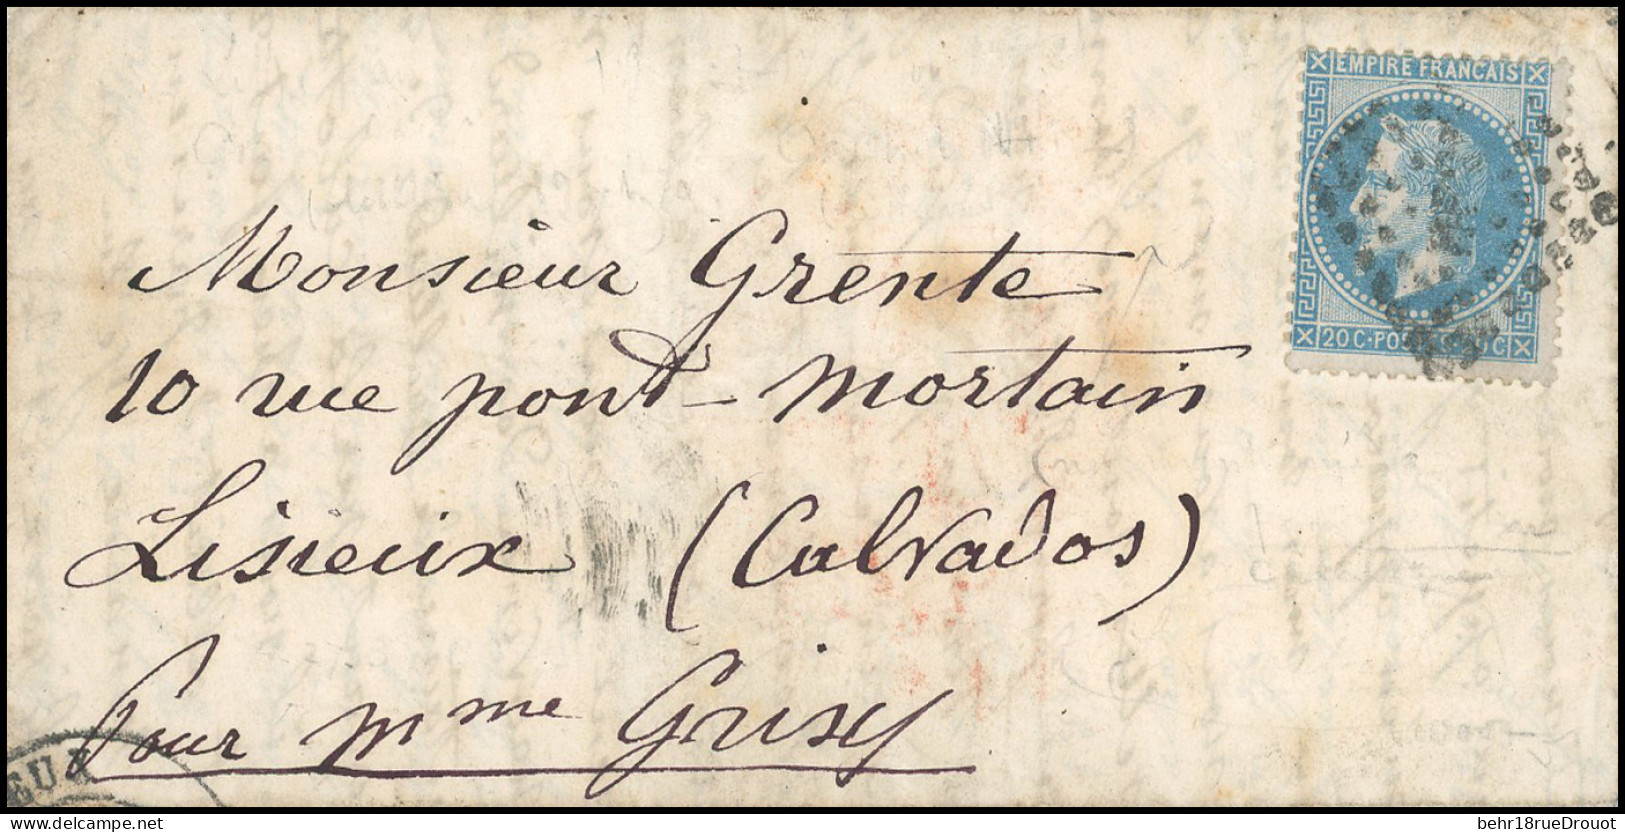 EMPIRE FRANCAIS
Monsieur Grente
10 rue pont-mortain
Lisieux (Calvados)
Pour Mme Grisy
delcampe.net
behr18rueDrouot